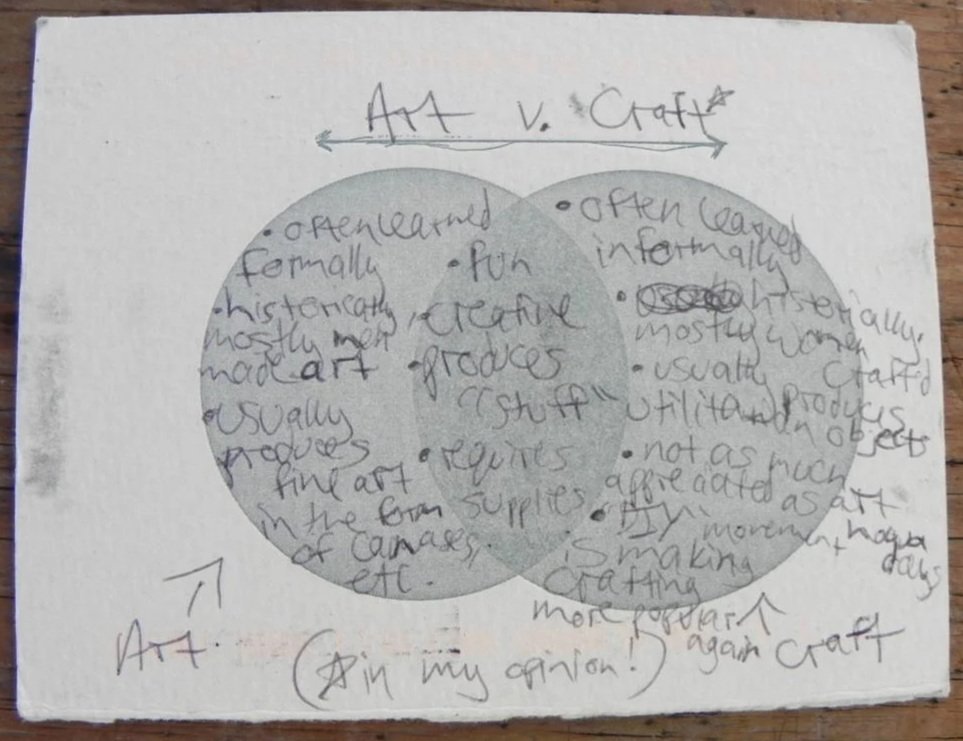 Art v. Craft*
• often learned
formally
• historically
mostly men
made art
• usually
produces
fine art
in the form
of canvases,
etc.
• fun
• creative
• produces
"stuff"
• requires
supplies
• often learned
informally
• historically
mostly women
craft'd
• usually
produces
utilitarian objects
• not as much
appreciated as art
• DIY movement nowadays
is making
crafting
more popular
again
Art
Craft
(*in my opinion!)